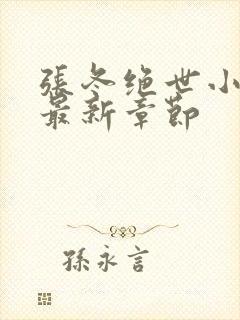 張冬绝世小
最新章節
孫永言